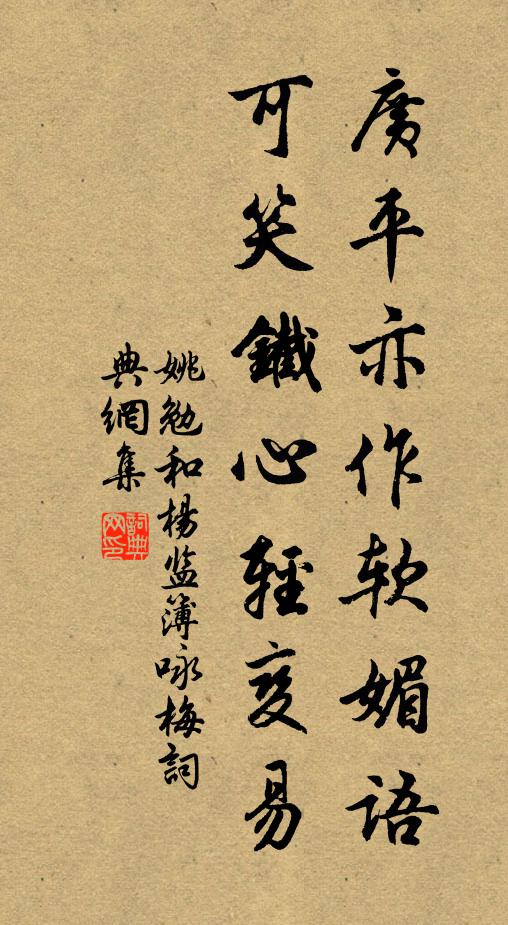 廣平亦作軟媚語
可笑鐵心輕变易
姚勉和楊监簿咏梅詞
典網集
詞典网印